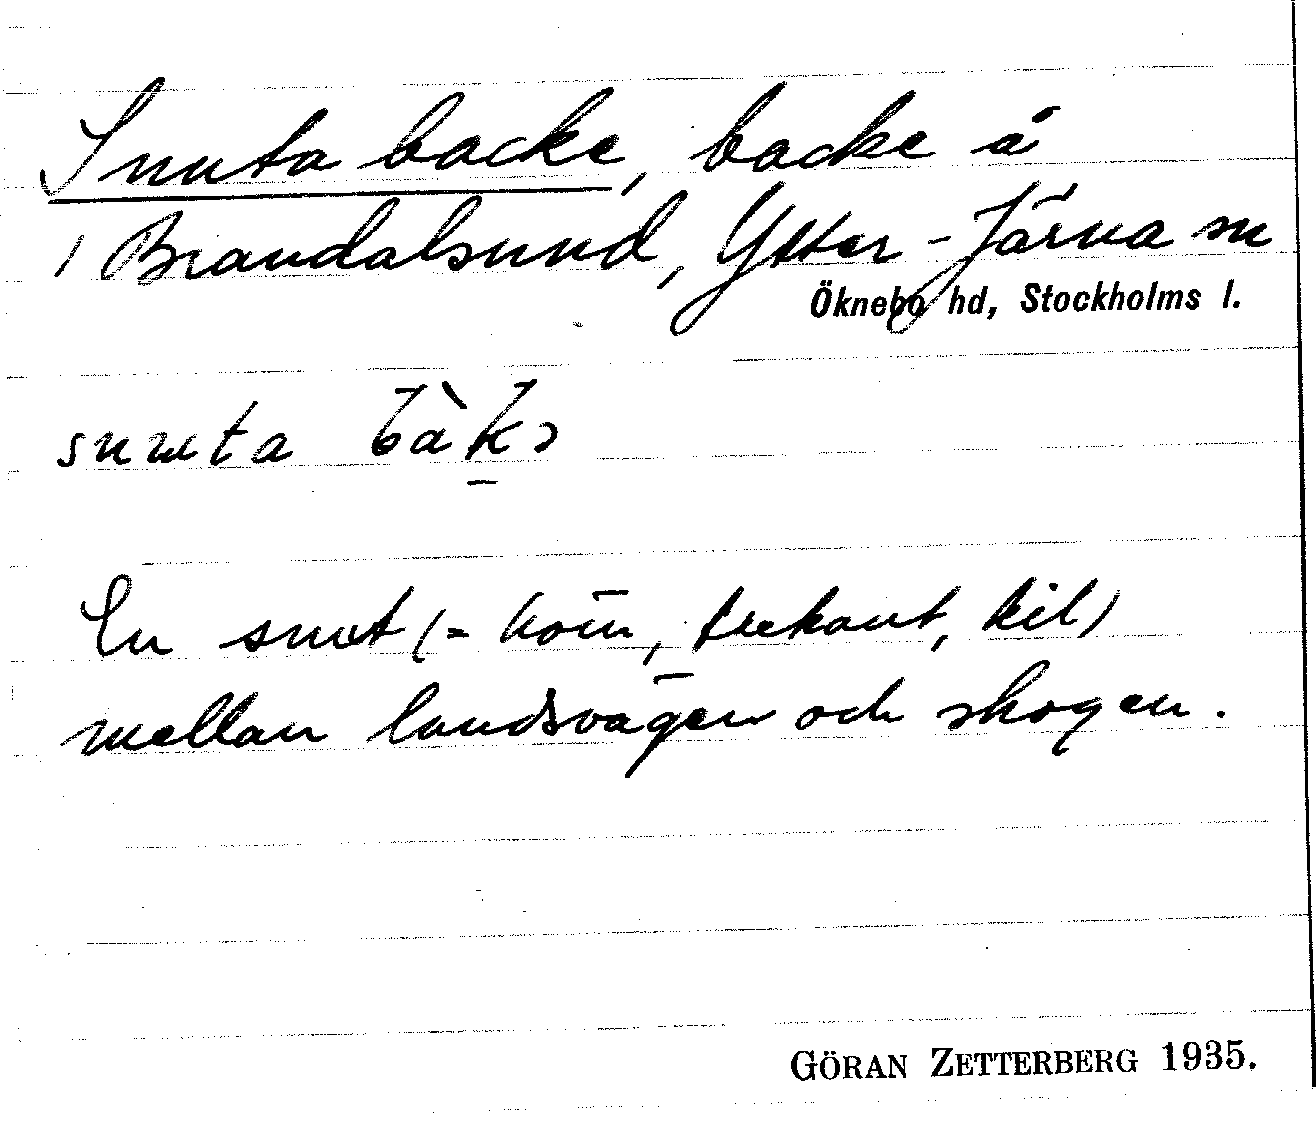 Snuta backe, backe å
/ Brandalsund, Ytter-Järna sn
Öknebo hd, Stockholms l.
snuta bàkə
En snut (= hörn, trekant, kil)
mellan landsvägen och skogen.
GÖRAN ZETTERBERG 1935.